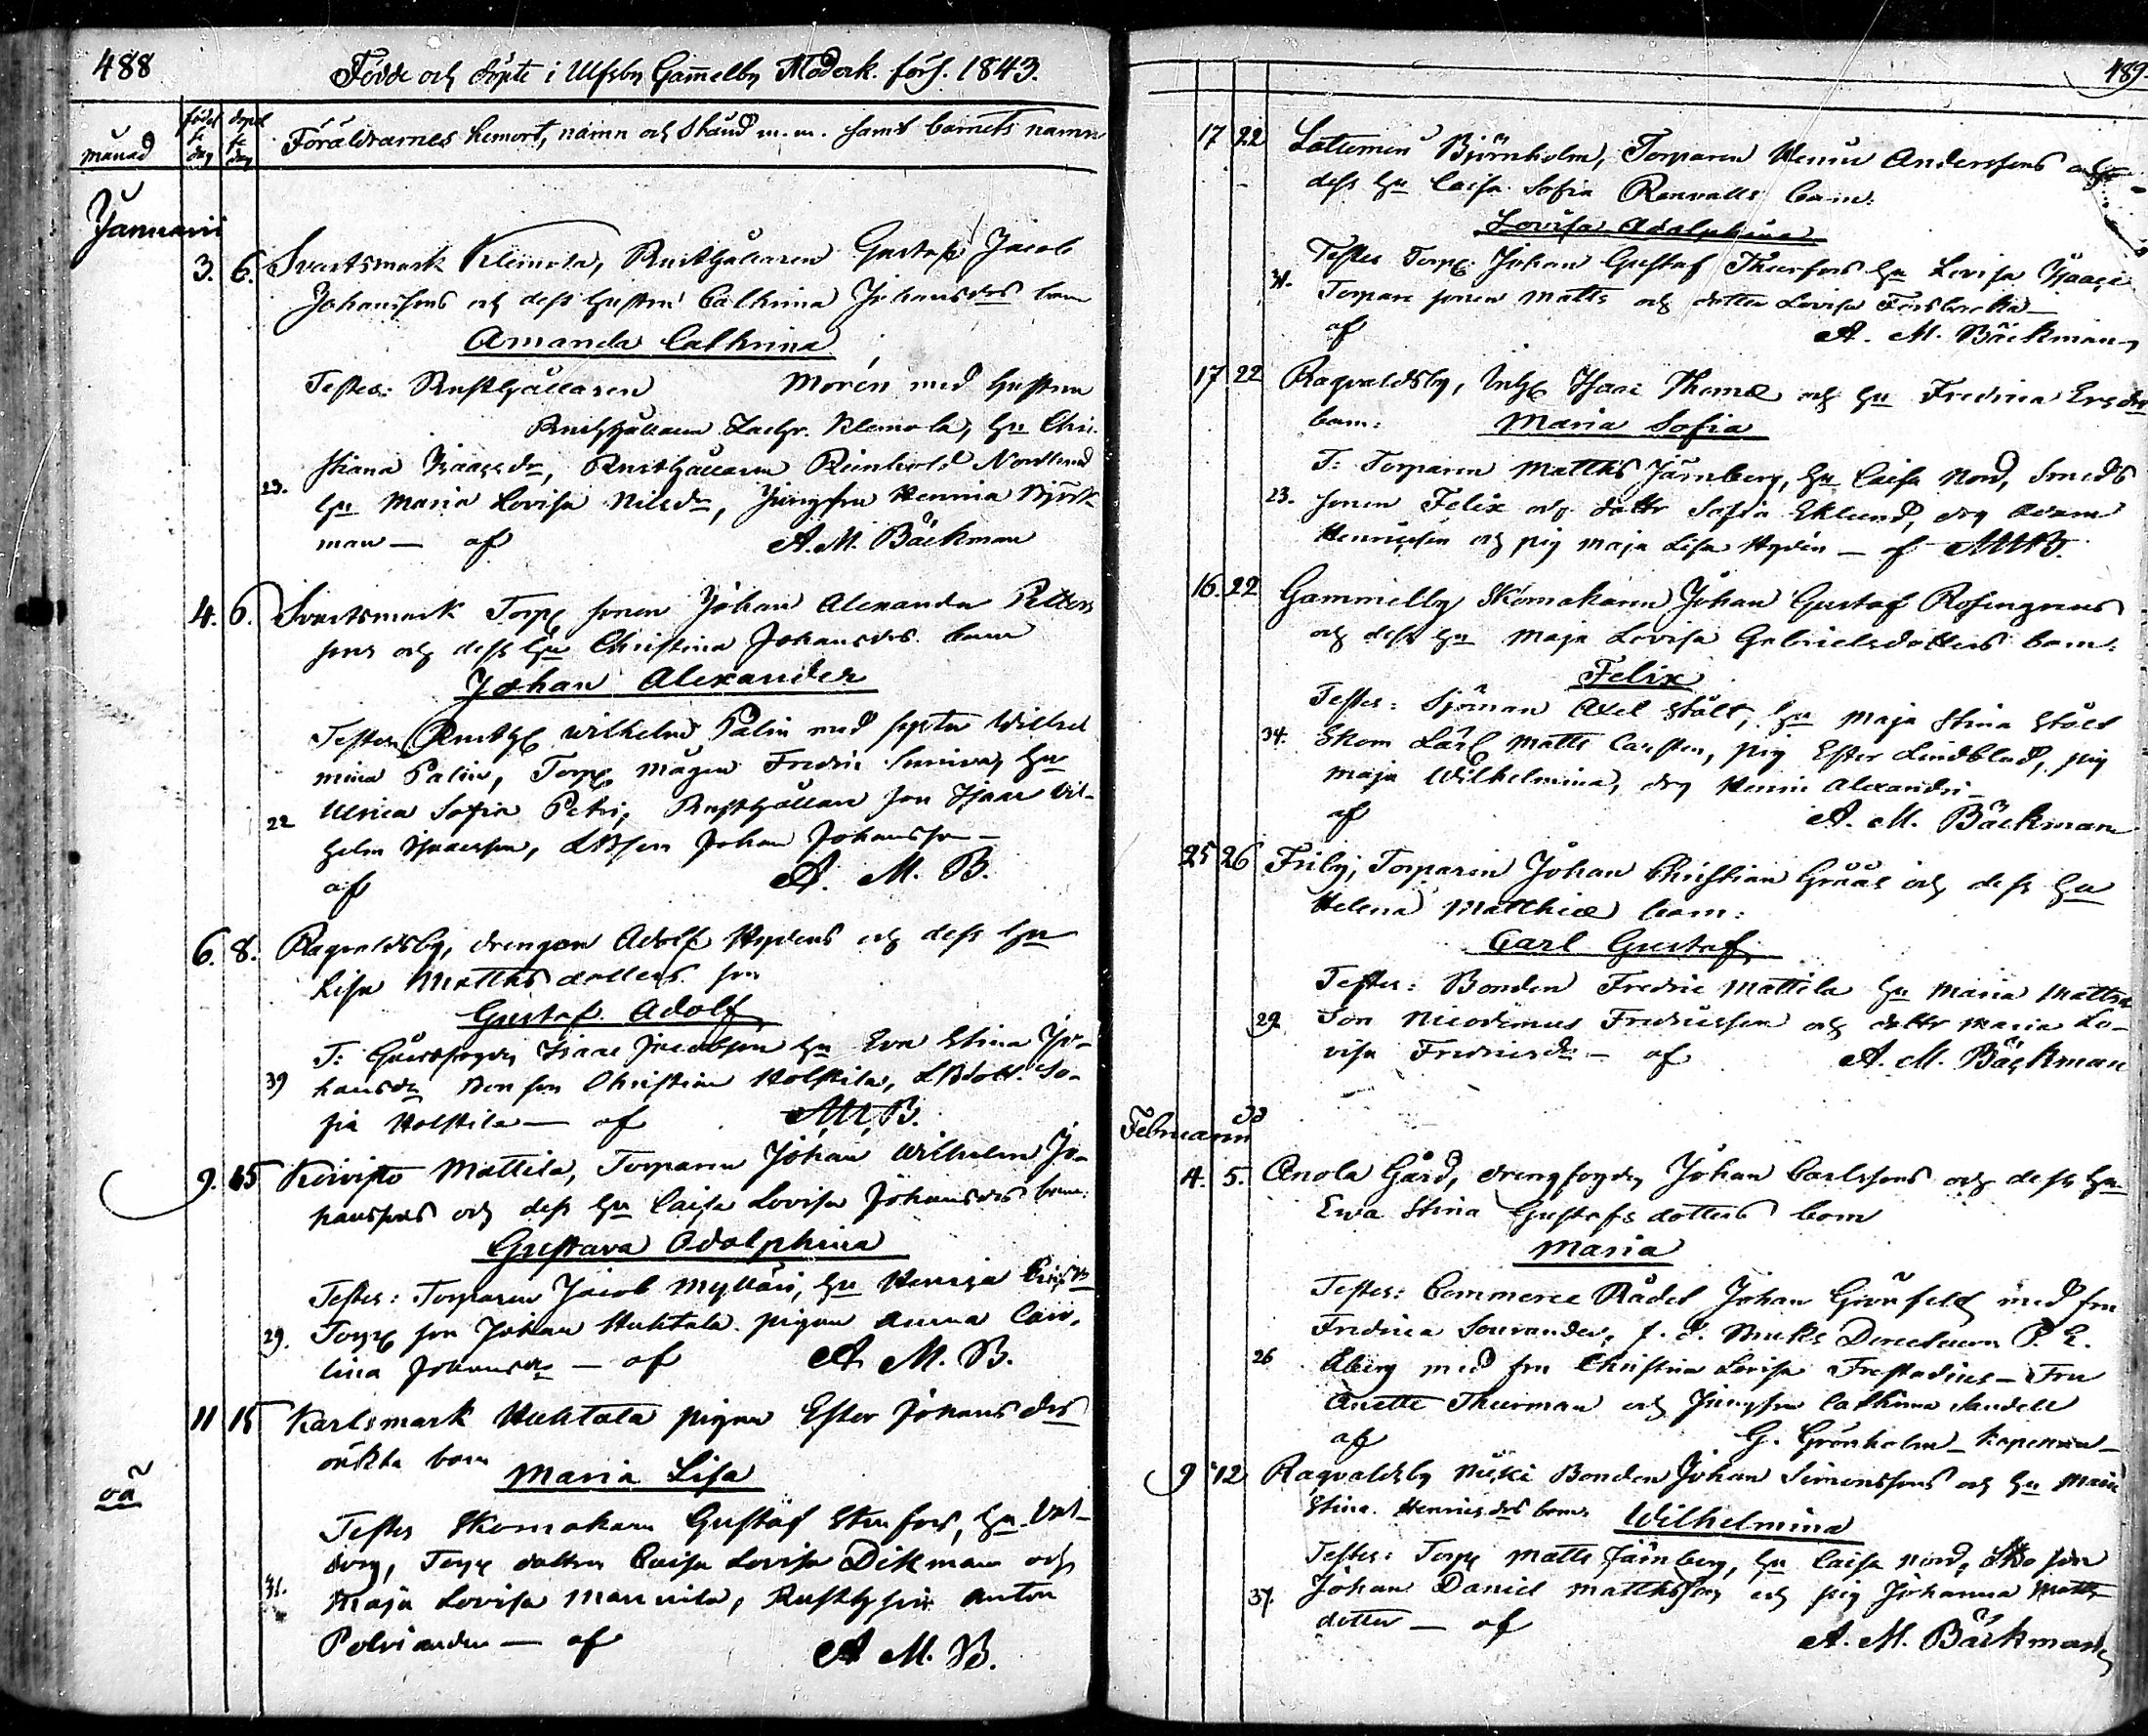 488
Födde och döpte i Ulfsby Gammelby Moderk. förs. 1843.
månad
född
dag
döpt
dag
Föräldrarnes hemort, namn och stånd m.m. samt barnets namn
Januarii
3. 6. Svartsmark Klemola, Rusthållaren Gustaf Jacob
Johanssons och dess hustru Cathrina Johansdrs barn
Amanda Cathrina
Testes: Rusthållaren Morén med hustru
Rusthållaren Zachr. Klemola, hu Chri-
stiana Isaacsdr, Rusthållaren Reinhold Nordlund
23. hu Maria Lovisa Nilsdr, Jungfru Hennia Björk-
man — af A. M. Bäckman
4. 6. Svartsmark Torp sonen Johan Alexander Petters
sons och dess hu Christina Johansdrs barn
Johan Alexander
Testes Rusth Wilhelm Palin med syster Wilhel
mina Palin, Torp mågen Fredric hu
Ulrica Sofia Petri, Rusthållare son Isaac Wil-
22 helm Isacsson, Johan Johansson —
af A. M. B.
6. 8. Ragvaldsby, drengen Adolf Hydens och dess hu
Lisa Matthsdotters son
Gustaf Adolf
T: Gårdsfogden Isaac Jacobsson hu Eva Stina Jo-
39 hansdr Bon son Christian Holstila, dott. So-
fia Holstila — af A.M.B.
9. 15 Koivisto Mattila, Torparen Johan Wilhelm Jo-
hanssons och dess hu Caisa Lovisa Johansdrs barn:
Gustava Adolphina
Testes: Torparen Jacob Mylläri, hu
29. Torp son Johan Huhtala pigan Anna Caro-
lina Johansdr — af A. M. B.
11 15 Karlsmark Huhtala pigan Ester Johansdrs
oäkta barn Maria Lisa
oä
Testes Skomakaren Gustaf Stenfors, hu Val-
borg, Torp dottren Caisa Lovisa Dikman och
31. Maja Lovisa Mannila, Rusth son Anton
Polviander — af A. M. B.
489.
17 22 Lattomeri Björnholm, Torparen Henric Anderssons och
dess hu Caisa Sofia Renvalls barn:
Lovisa Adolphina
Testes Torp. Johan Gustaf Thurfors hu Lovisa Isaacs
31. Torpare sonen Matts och dotter Lovisa
af A. M. Bäckman
17 22 Ragvaldsby, Inh Isaac Thomæ och hu Fredrica Ersdrs
barn: Maria Sofia
T: Torparen Matths Järnberg, hu Caisa Nord, Smeds
23. sonen Felix och dottr Sofia Eklund, drg Adam
Henricsson och pig Maja Lisa Hydén — af AMB.
16. 22 Gammelby Skomakaren Johan Gustaf Rosengrens
och dess hu Maja Lovisa Gabrielsdotters barn:
Felix
Testes: Sjöman Axel Stålt, hu Maja Stina Stålt
34. Skom Lärl Matts Carsten, pig Ester Lindblad, pig
Maja Wilhelmina, drg Henric Alexandri —
af A. M. Bäckman
25 26 Friby, Torparen Johan Christian Gråås och dess hu
Helena Matthiæ barn:
Carl Gustaf
Testes: Bonden Fredric Mattila hu Maria Mattsdr
29. Son Nicodemus Fredricsson och dottr Maria Lo-
visa Fredricsdr — af A. M. Bäckman
Februarii
4. 5. Anola Gård, drengfogden Johan Carlssons och dess hu
Eva Stina Gustafsdotters barn
Maria
Testes: Commerce Rådet Johan Grönfeldt med fru
Fredrica Sourander, f. d. Bruks Directeuren P. E.
26 Åberg med fru Christina Lovisa Frestadius — Fru
Anette Thurman och Jungfru Cathrina Sandell
af G. Grönholm — Kapellan —
9 12 Ragvaldsby Niski Bonden Johan Simonssons och hu Maria
Stina Henricsdrs barn: Wilhelmina
Testes: Torp Matts Järnberg, hu Caisa Nord, son
37. Johan Daniel Matthsson och pig Johanna Matts
dotter — af A. M. Bäckman